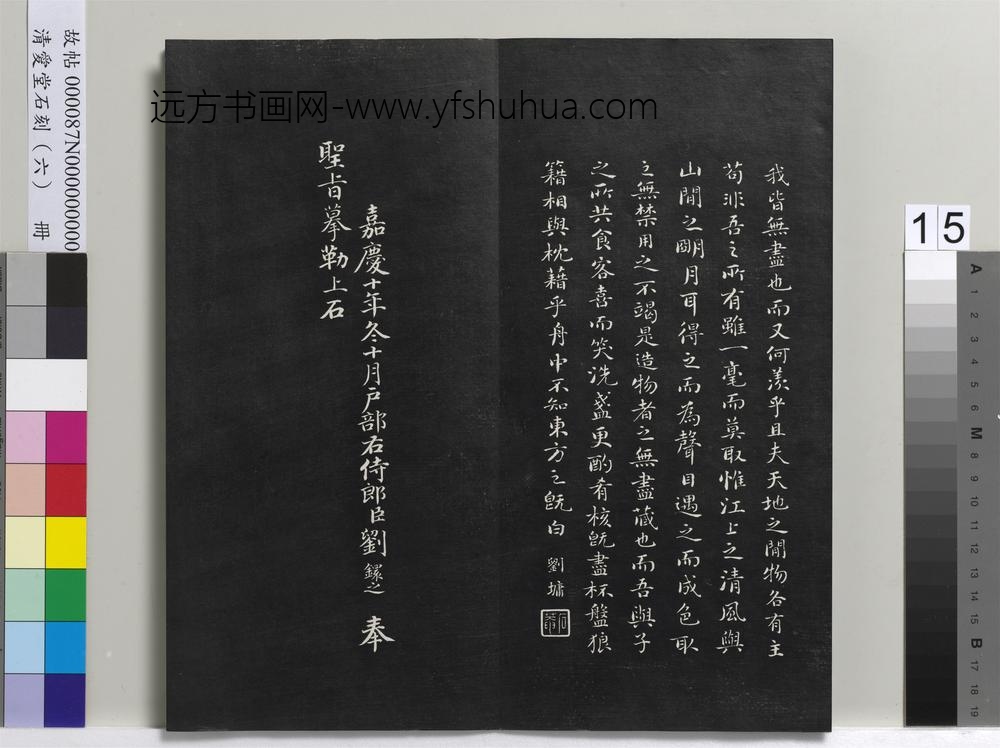 我皆無盡也而又何羨乎且夫天地之間物各有主
苟非吾之所有雖一毫而莫取惟江上之清風與
山間之朙月耳得之而為聲目遇之而成色取
之無禁用之不竭是造物者之無盡藏也而吾與子
之所共食客喜而笑洗盞更酌肴核既盡杯盤狼
籍相與枕藉乎舟中不知東方之既白 劉墉
嘉慶十年冬十月戶部右侍郎臣劉鐶之奉
聖旨摹勒上石
远方书画网-www.yfshuhua.com
故帖 000087N000000000
清愛堂石刻（六） 冊
15
A
1
2
3
4
5
6
M
8
9
10
11
12
13
14
15
B
17
18
19